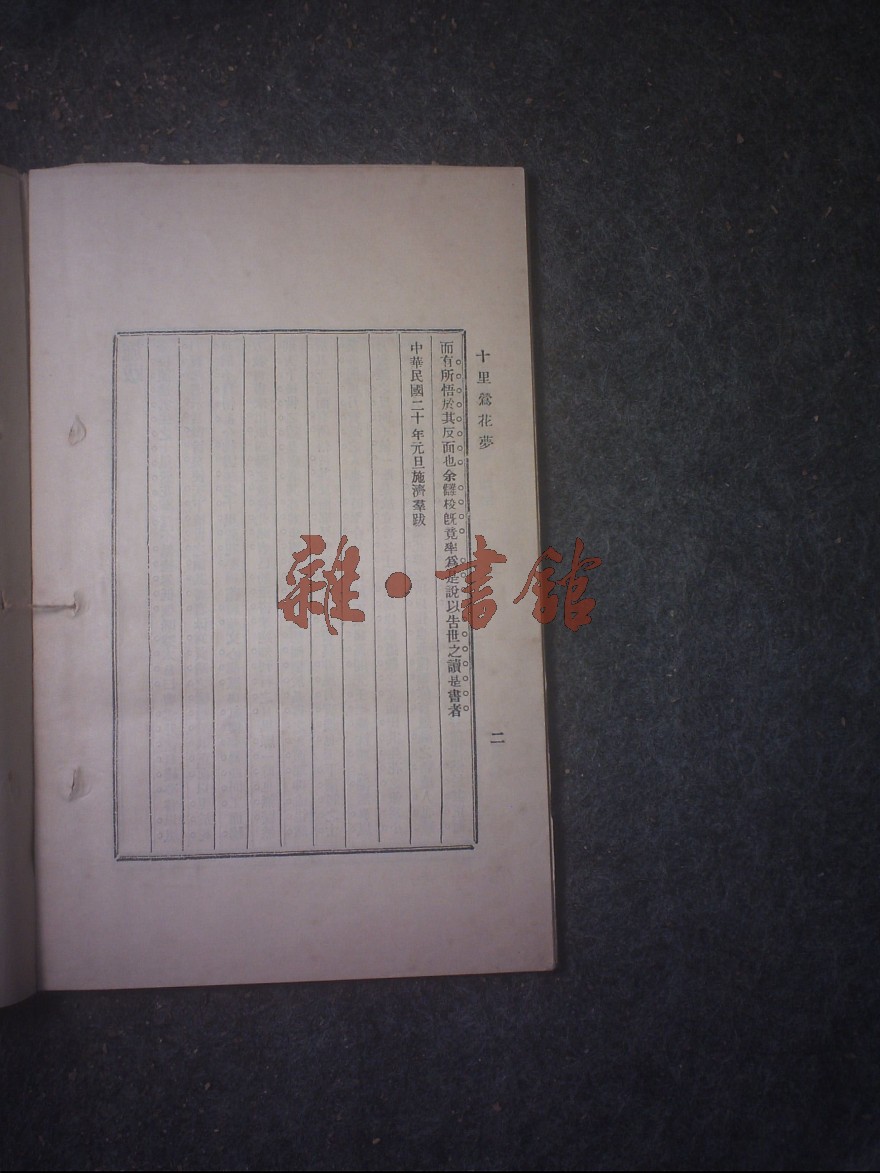 十里鶯花夢
二
而有所悟於其反面也余讐校旣竟率爲是說以告世之讀是書者
中華民國二十年元旦施濟羣跋
雜·書館